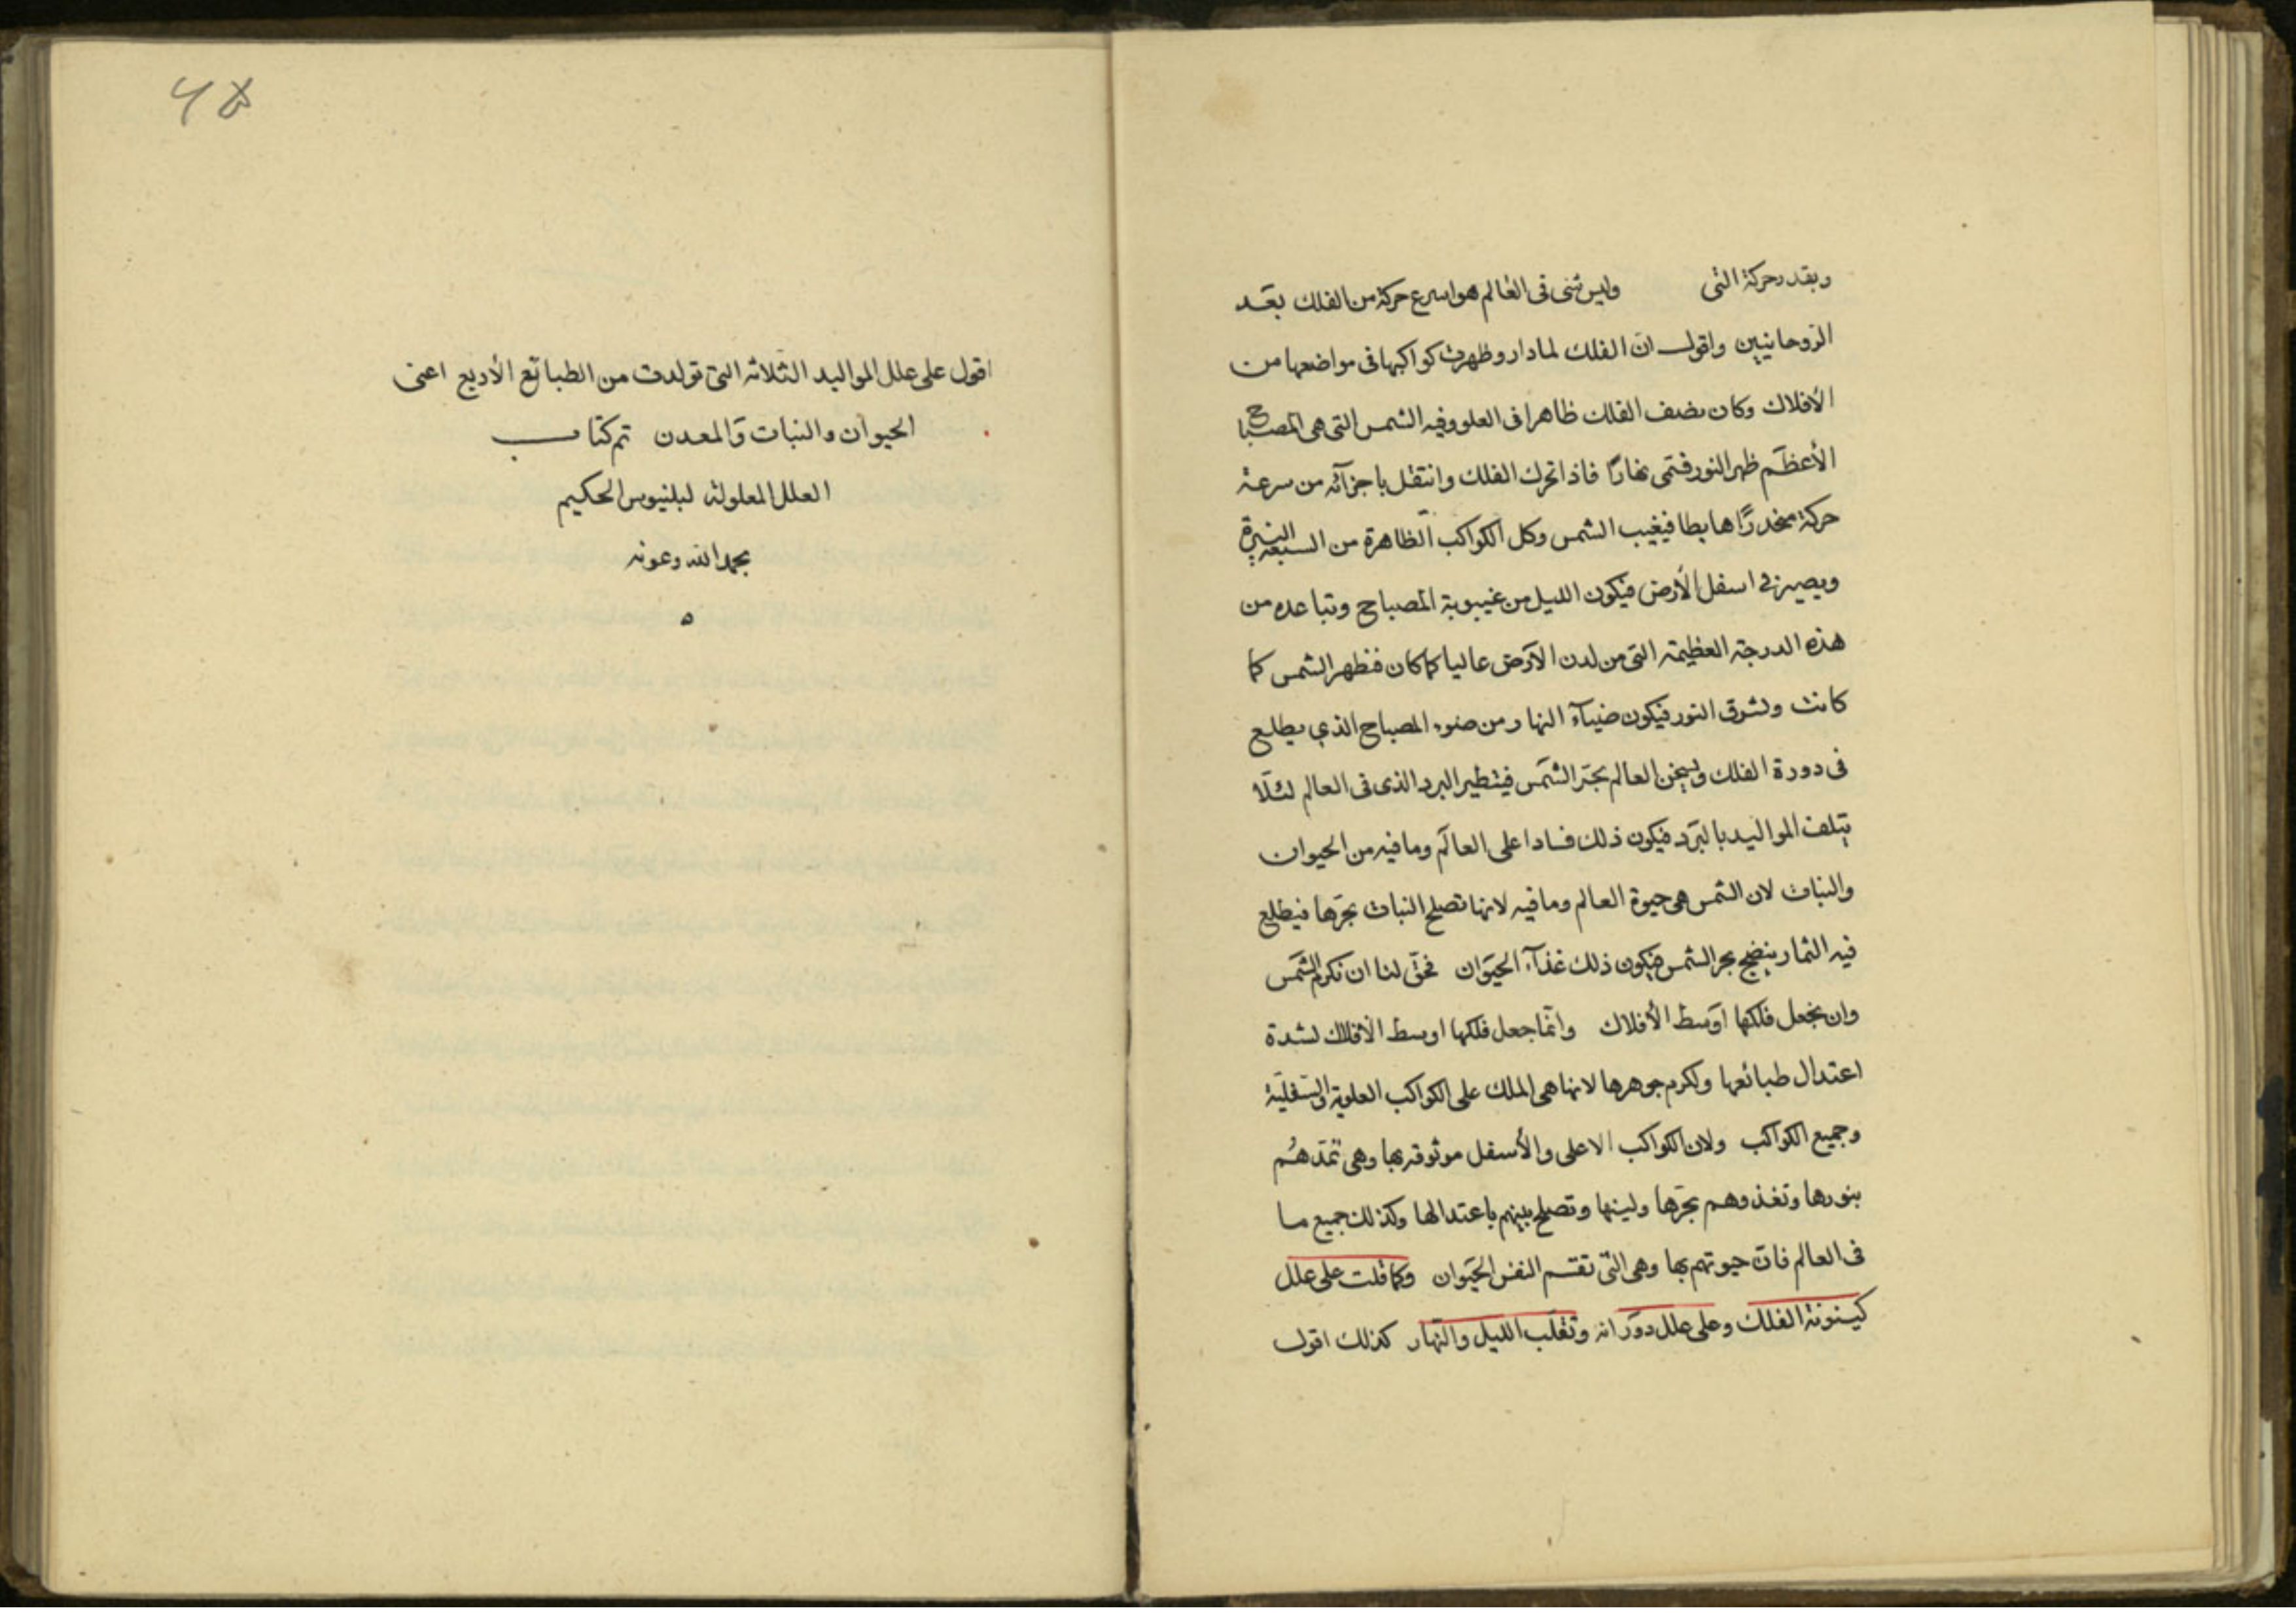 وبقدر حركة التى وليس شئ فى العالم هو اسرع حركة من الفلك بعد
الروحانيين واقول ان الفلك لما دار وظهرت كواكبها فى مواضعها من
الأفلاك وكان نصف الفلك ظاهرا فى العلو وفيه الشمس التى هى المصباح
الأعظم ظهر النور فتمى نهارًا فاذا تحرك الفلك وانتقل باجزآئه من سرعة
حركة منحدرًا هابطا فيغيب الشمس وكل الكواكب الظاهرة من السبعة النيرة
ويصير فى اسفل الأرض فيكون الليل من غيبوبة المصباح وتباعده من
هذه الدرجة العظيمة التى من لدن الارض عاليا كما كان فظهر الشمس كما
كانت وتشرق النور فيكون ضيآء النهار من ضوء المصباح الذي يطلع
فى دورة الفلك ويسخن العالم بحر الشمس فيتطير البرد الذى فى العالم لئلا
يتلف المواليد بالبرد فيكون ذلك فسادا على العالم وما فيه من الحيوان
والنبات لان الشمس هى حيوة العالم وما فيه لانها تصلح النبات بحرها فيطلع
فيه الثمار ينضج بحر الشمس فيكون ذلك غذآء الحيوان فحق لنا ان نكرم الشمس
وان نجعل فلكها اوسط الأفلاك وانما جعل فلكها اوسط الافلاك لشدة
اعتدال طبائعها ولكرم جوهرها لانها هى الملك على الكواكب العلوية والسفلية
وجميع الكواكب ولان الكواكب الاعلى والأسفل موثوقة بها وهى تمدهم
بنورها وتغذوهم بحرها ولينها وتصلح بينهم باعتدالها وكذلك جميع ما
فى العالم فان حيوتهم بها وهى التى تقسم النفس الحيوان وكما قلت على علل
كينونة الفلك وعلى علل دورانه وتقلب الليل والنهار كذلك اقول
٤٥
اقول على علل المواليد الثلاثه التى تولدت من الطبائع الأربع اعنى
الحيوان والنبات والمعدن تم كتاب
العلل المعلولة لبلنيوس الحكيم
بحمد الله وعونه
ه